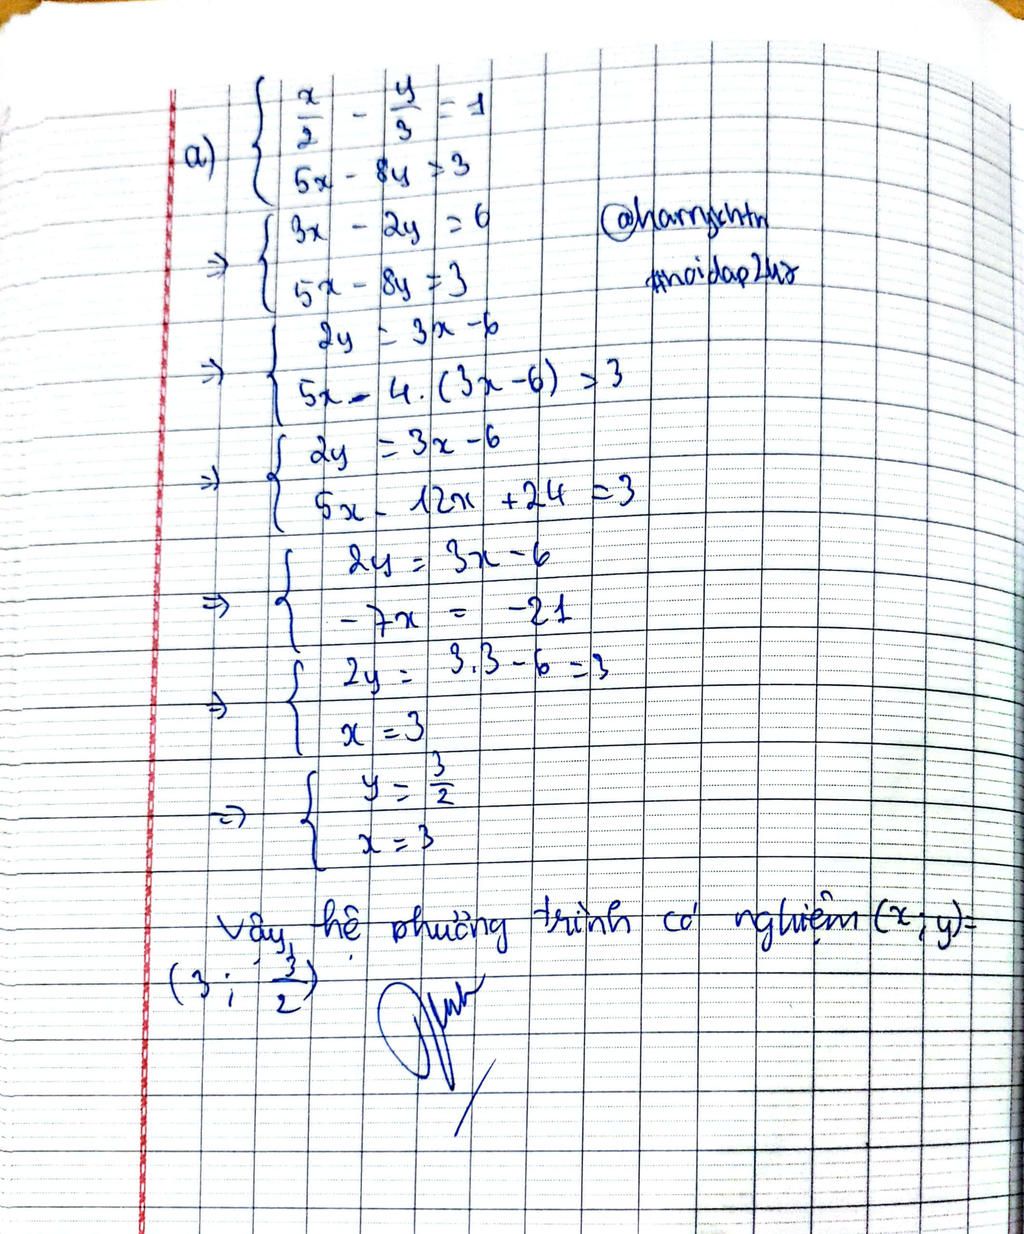 a) { x/2 - y/3 = 1
5x - 8y = 3
⇒ { 3x - 2y = 6
@harrychtn
5x - 8y = 3
#hoidap247
⇒ { 2y = 3x - 6
5x - 4.(3x - 6) = 3
⇒ { 2y = 3x - 6
5x - 12x + 24 = 3
⇒ { 2y = 3x - 6
- 7x = -21
⇒ { 2y = 3.3 - 6 = 3
x = 3
⇒ { y = 3/2
x = 3
Vậy, hệ phường trình có nghiệm (x; y) =
(3; 3/2)